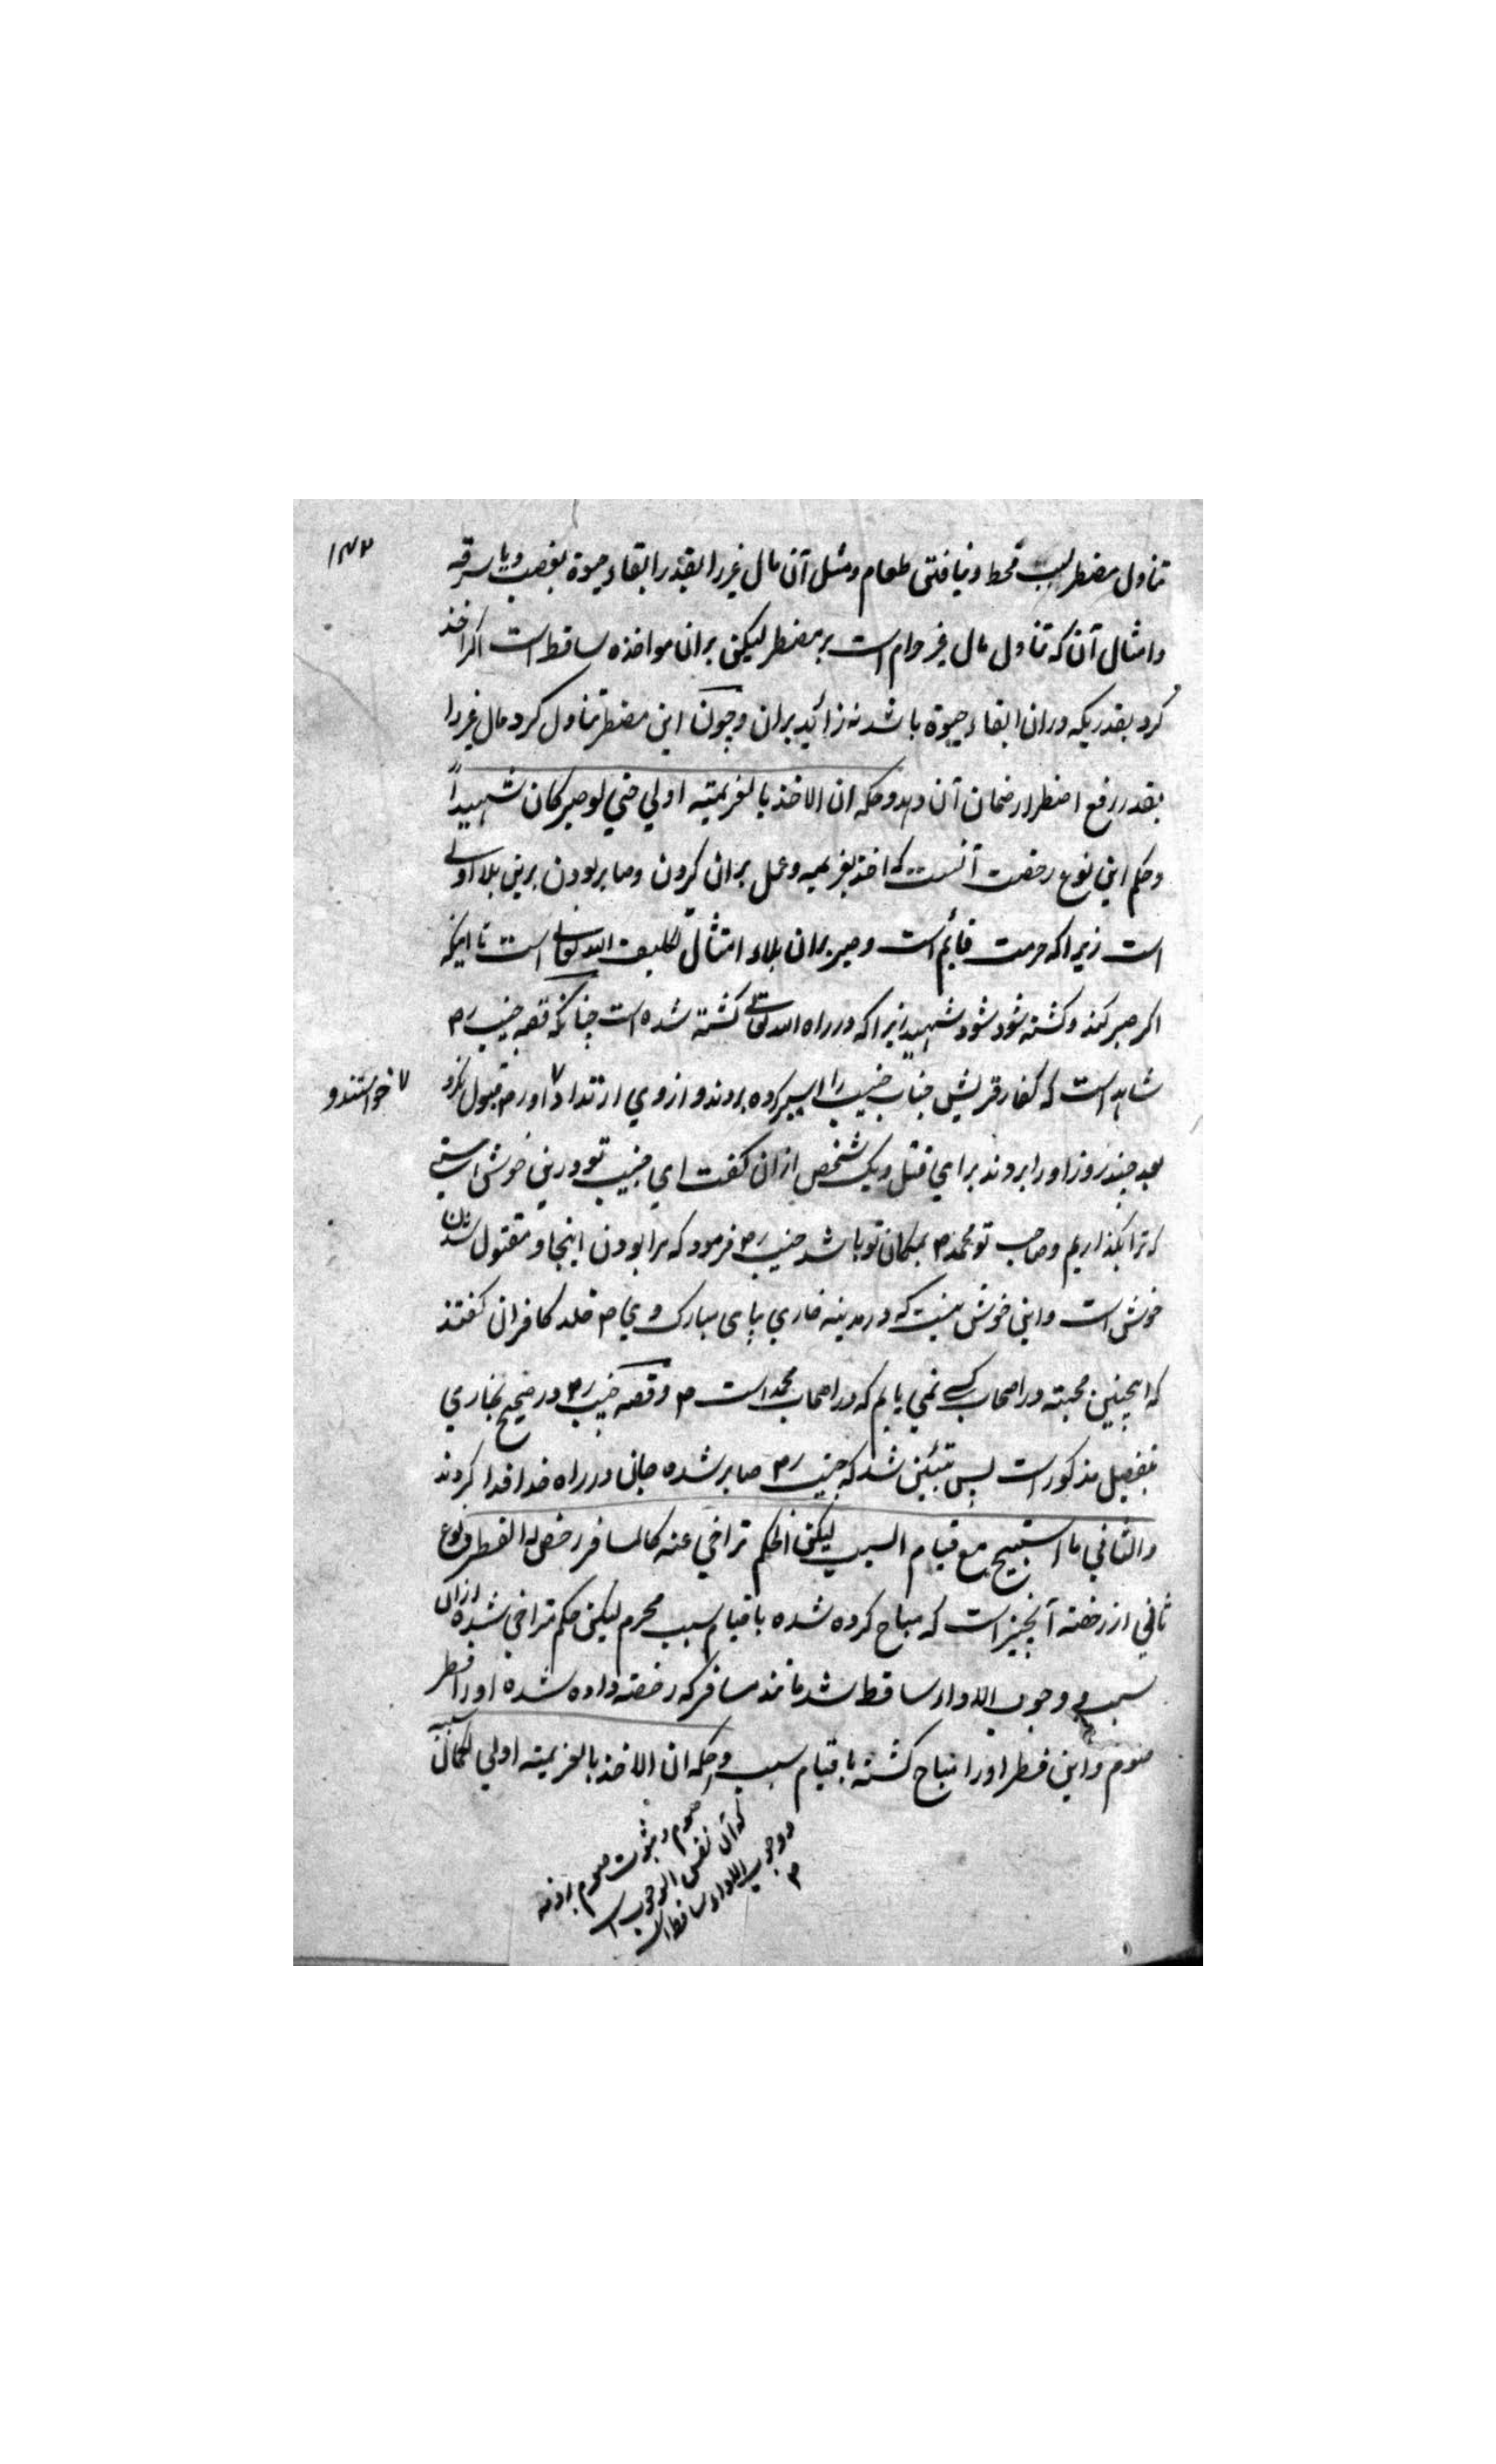 ۱۴۲
تناول مضطر بسبب قحط و نیافتن طعام و مثل آن مال غیر را بقدر ابقاء حیوة بغصب و یا سرقه
و امثال آن که تناول مال غیر حرام است بر مضطر لیکن بران مواخذه ساقط است اگر اخذ
کرد بقدریکه دران ابقاء حیوة باشد نه زائید بران و چون این مضطر تناول کرد مال غیر را
بقدر رفع اضطرار ضمان آن دهد و حکمه ان الاخذ بالعزیمته اولي حتي لو صبر کان شهیداً
و حکم این نوع رخصت آنست که اخذ بعزیمه و عمل بران کردن و صابر بودن برین بلا اولے
است زیرا که حرمت قایٔم است و صبر بران بلاء امتثال تکلیف الله تعالی است تا اینکه
اکر صبر کند و کشته شود شود شهید زیرا که در راه الله تعالے کشته شده است چنانکه قصه خبیب رض
شاهد است که کفار قریش جناب خبیب را اسیر کرده بردند و از وي ارتداد ۷ اورض قبول نکرد
۷ خواستند و
بعد چند روز او را بردند برای قتل و یک شخص ازان کفت اي خبیب تو درین خوش استے
که ترا بکذاریم و صاحب تو محمد ص بمکان تو باشد خبیب رض فرمود که مرا بودن اینجا و مقتول شدن
خوش است و این خوش نیست که در مدینه خاري بپای مبارک وي ص خلد کافران کفتند
که اینچنین محبته در اصحاب کسے نمي یابم که در اصحاب محمد است ص و قصه خبیب رض در صحیح بخاري
بتفصیل مذکور است پس متبئین شد که خبیب رض صابر شده جان در راه خدا فدا کردند
و الثاني ما استبیح مع قیام السبب لیکن الحکم تراخي عنه کالمسافر رخص له الفطر و نوع
ثاني از رخصته آنچیز است که مباح کرده شده با قیام سبب محرم لیکن حکم تراخي شده ازان
سبب و وجوب الاداء ساقط شد مانند مسافر که رخصته داده شده او را فطر
صوم و این فطر او را مباح کشته با قیام سبب و حکمه ان الاخذ بالعزیمته اولي لکمال سببه
صوم و ثبوت صوم بر ذمه
که آن نفس الوجوب است
و وجوب الاداء ساقط است